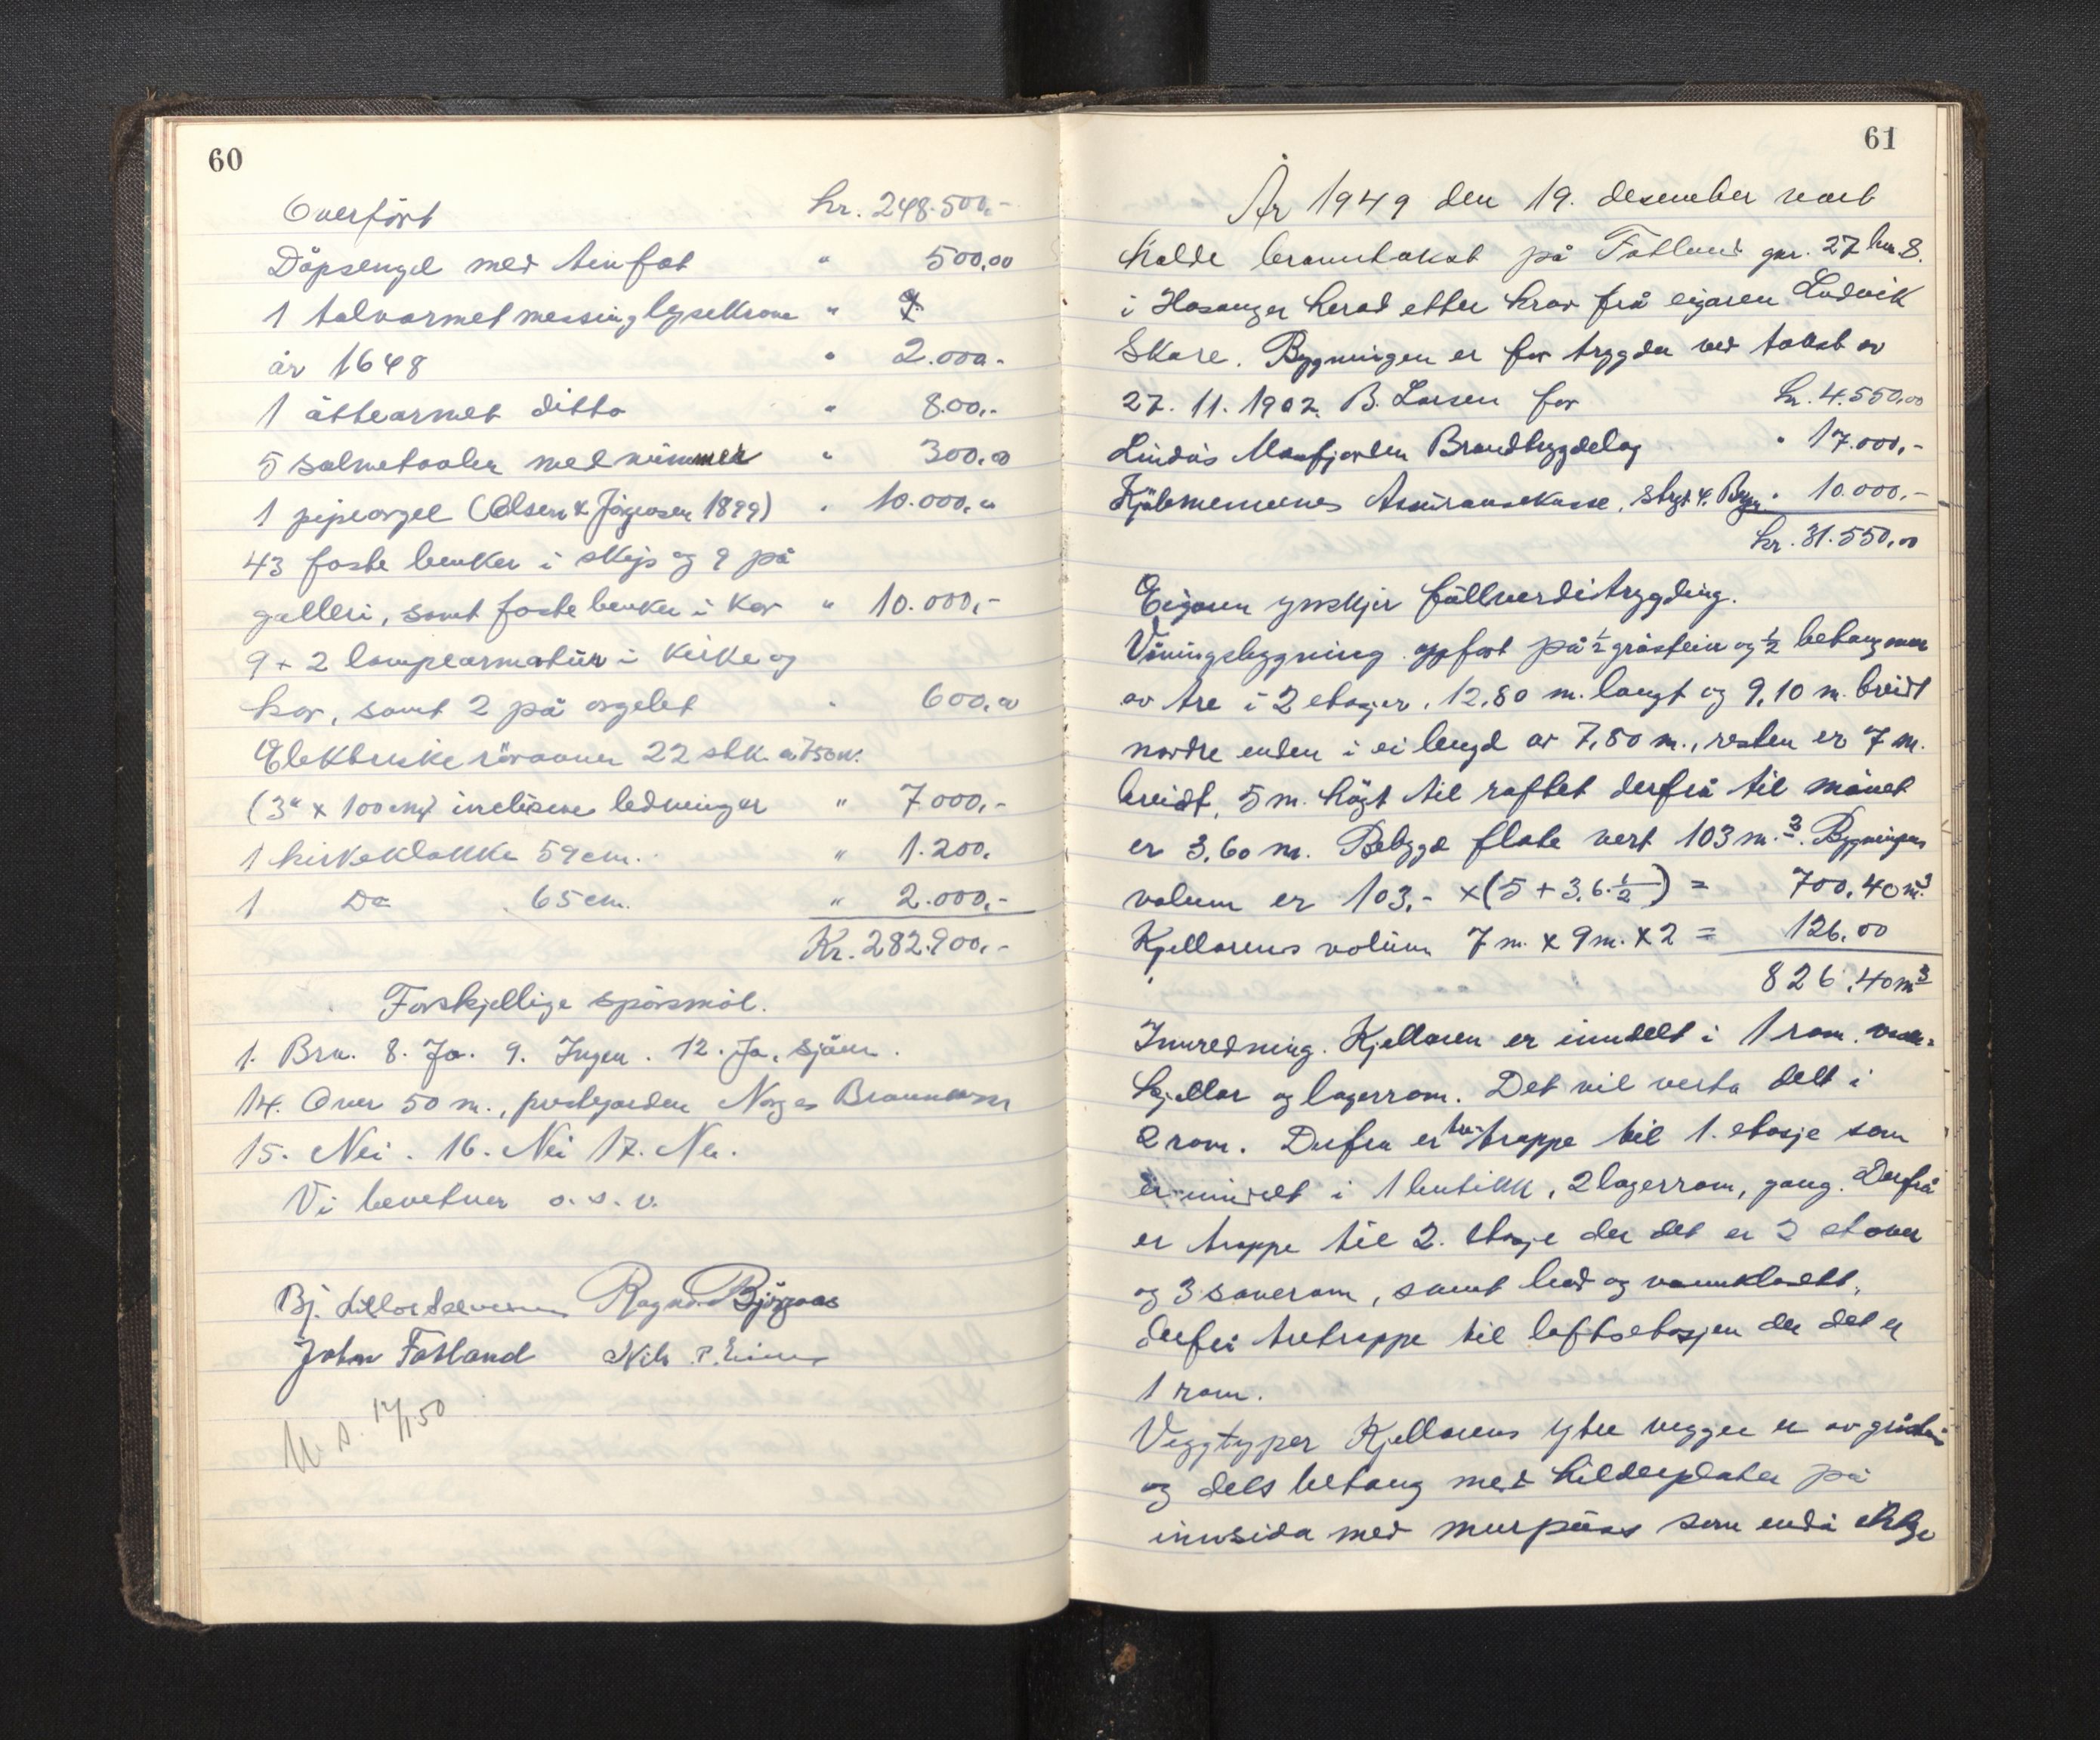 60
Overfört kr. 248.500,-
Döpsengel med tinfat " 500,00
1 tolvarmet messing lysekrone "
år 1648 " 2.000.-
1 åttearmet ditto " 800,-
5 salmetavler med nummer " 300,00
1 pipeorgel (Olsen & Jörgensen 1899) " 10.000,00
43 faste benker i skip og 9 på
galleri, samt faste benker i kor " 10.000,-
9 + 2 lampearmatur i kirke og
kor, samt 2 på orgelet " 600,00
Elektriske rörovner 22 stk. a 750w.
(3" x 100cm) inclusive ledninger " 7000,-
1 kirkeklokke 59 cm. " 1.200.
1 Do 65 cm. " 2.000,-
Kr. 282.900,-
Forskjellige spörsmål.
1. Bra. 8. Ja. 9. Ingen. 12. Ja, sjöen.
14. Over 50 m., prestgarden Norges Brannkasse
15. Nei. 16. Nei 17. Nei.
Vi bevitner o. s. v.
Bj. Ragnar Björgaas
John Fatland Nils P.
12/1 50
61
År 1949 den 19. desember vart
halde branntakst på Fatland gnr. 27 bnr. 8.
i Hosanger herad etter krav frå eigaren Ludvik
Skare. Bygningen er för trygda ved takst av
27. 11. 1902. B. Larsen for kr. 4.550,00
Lindås Masfjorden Brandtrygdelag " 17.000,-
Kjöbmennenes Assuransekasse, strgt 4. Bergen " 10.000,-
kr. 31.550,00
Eigaren ynskjer fullverditrygding.
Våningsbygning oppfört på ½ gråstein og ½ betong mur
av tre i 2 etasjer, 12,80 m. langt og 9,10 m. breidt
nordre enden i ei lengd av 7,80 m., resten er 7 m.
breidt, 5 m. högt til raftet derfrå til mönet
er 3,60 m. Bebygd flate vert 103 m.². Bygningens
volum er 103,- x (5 + 3,6.½) = 700,40 m.³
Kjellarens volum 7 m. x 9 m. x 2 = 126,00
826,40 m³
Innredning. Kjellaren er inndelt i 1 rom.
kjellar og lagerrom. Det vil verta delt i
2 rom. Derfra er tre-trappe til 1. etasje som
er inndelt i 1 butikk, 2 lagerrom, gang. Derfrå
er trappe til 2. etasje der det er 2 stover
og 3 soverom, samt bad og vannklosett,
derfrå tretrappe til loftsetasjen der det er
1 rom.
Veggtyper Kjellarens ytre vegger er av gråstein
og dels betong med kilderplater på
innsida med murpuss som endå ikkje